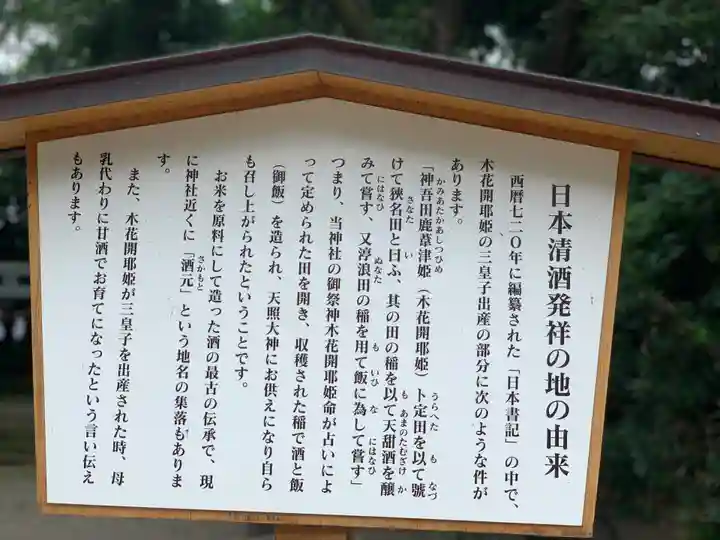 日本清酒発祥の地の由来
西暦七二〇年に編纂された「日本書記」の中で、
木花開耶姫の三皇子出産の部分に次のような件が
あります。
かみあたかあしつひめ うらへた も なづ
「神吾田鹿葦津姫（木花開耶姫）卜定田を以て號
さなた い も あまのたむざけ か
けて狭名田と曰ふ、其の田の稲を以て天甜酒を醸
にはなひ ぬなた も いひ な にはなひ
みて嘗す、又渟浪田の稲を用て飯に為して嘗す」
つまり、当神社の御祭神木花開耶姫命が占いによ
って定められた田を開き、収穫された稲で酒と飯
（御飯）を造られ、天照大神にお供えになり自ら
も召し上がられたということです。
お米を原料にして造った酒の最古の伝承で、現
さかもと
に神社近くに「酒元」という地名の集落もありま
す。
また、木花開耶姫が三皇子を出産された時、母
乳代わりに甘酒でお育てになったという言い伝え
もあります。